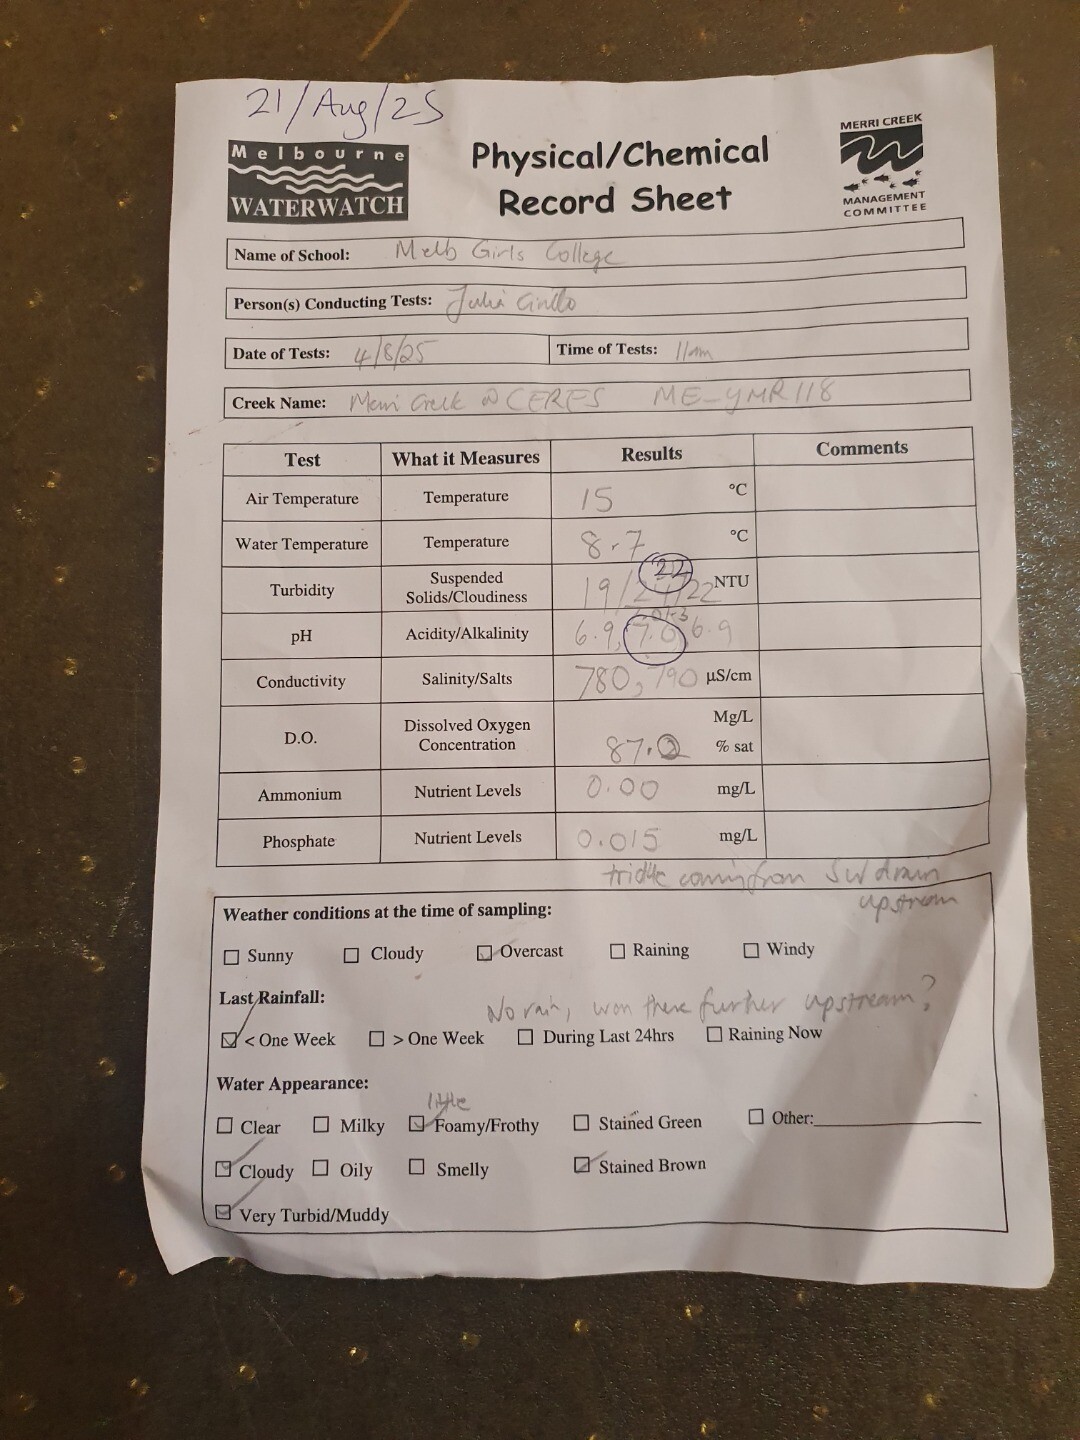 21/Aug/25
Melbourne
WATERWATCH
Physical/Chemical
Record Sheet
MERRI CREEK
MANAGEMENT
COMMITTEE
Name of School: Melb Girls College
Person(s) Conducting Tests: Julia
Date of Tests: 4/8/25 Time of Tests: 11am
Creek Name: Merri Creek @ CERES ME-YMR118
Test What it Measures Results Comments
Air Temperature Temperature 15 °C
Water Temperature Temperature 8.7 °C
22
Turbidity Suspended Solids/Cloudiness 19/ /22 NTU
pH Acidity/Alkalinity 6.9, 7.0, 6.9
Conductivity Salinity/Salts 780, 790 µS/cm
D.O. Dissolved Oxygen Concentration Mg/L
87.0 % sat
Ammonium Nutrient Levels 0.00 mg/L
Phosphate Nutrient Levels 0.015 mg/L
coming from SW drain
upstream
Weather conditions at the time of sampling:
Sunny Cloudy Overcast Raining Windy
Last Rainfall: No rain, there further upstream?
< One Week > One Week During Last 24hrs Raining Now
Water Appearance:
little
Clear Milky Foamy/Frothy Stained Green Other:
Cloudy Oily Smelly Stained Brown
Very Turbid/Muddy